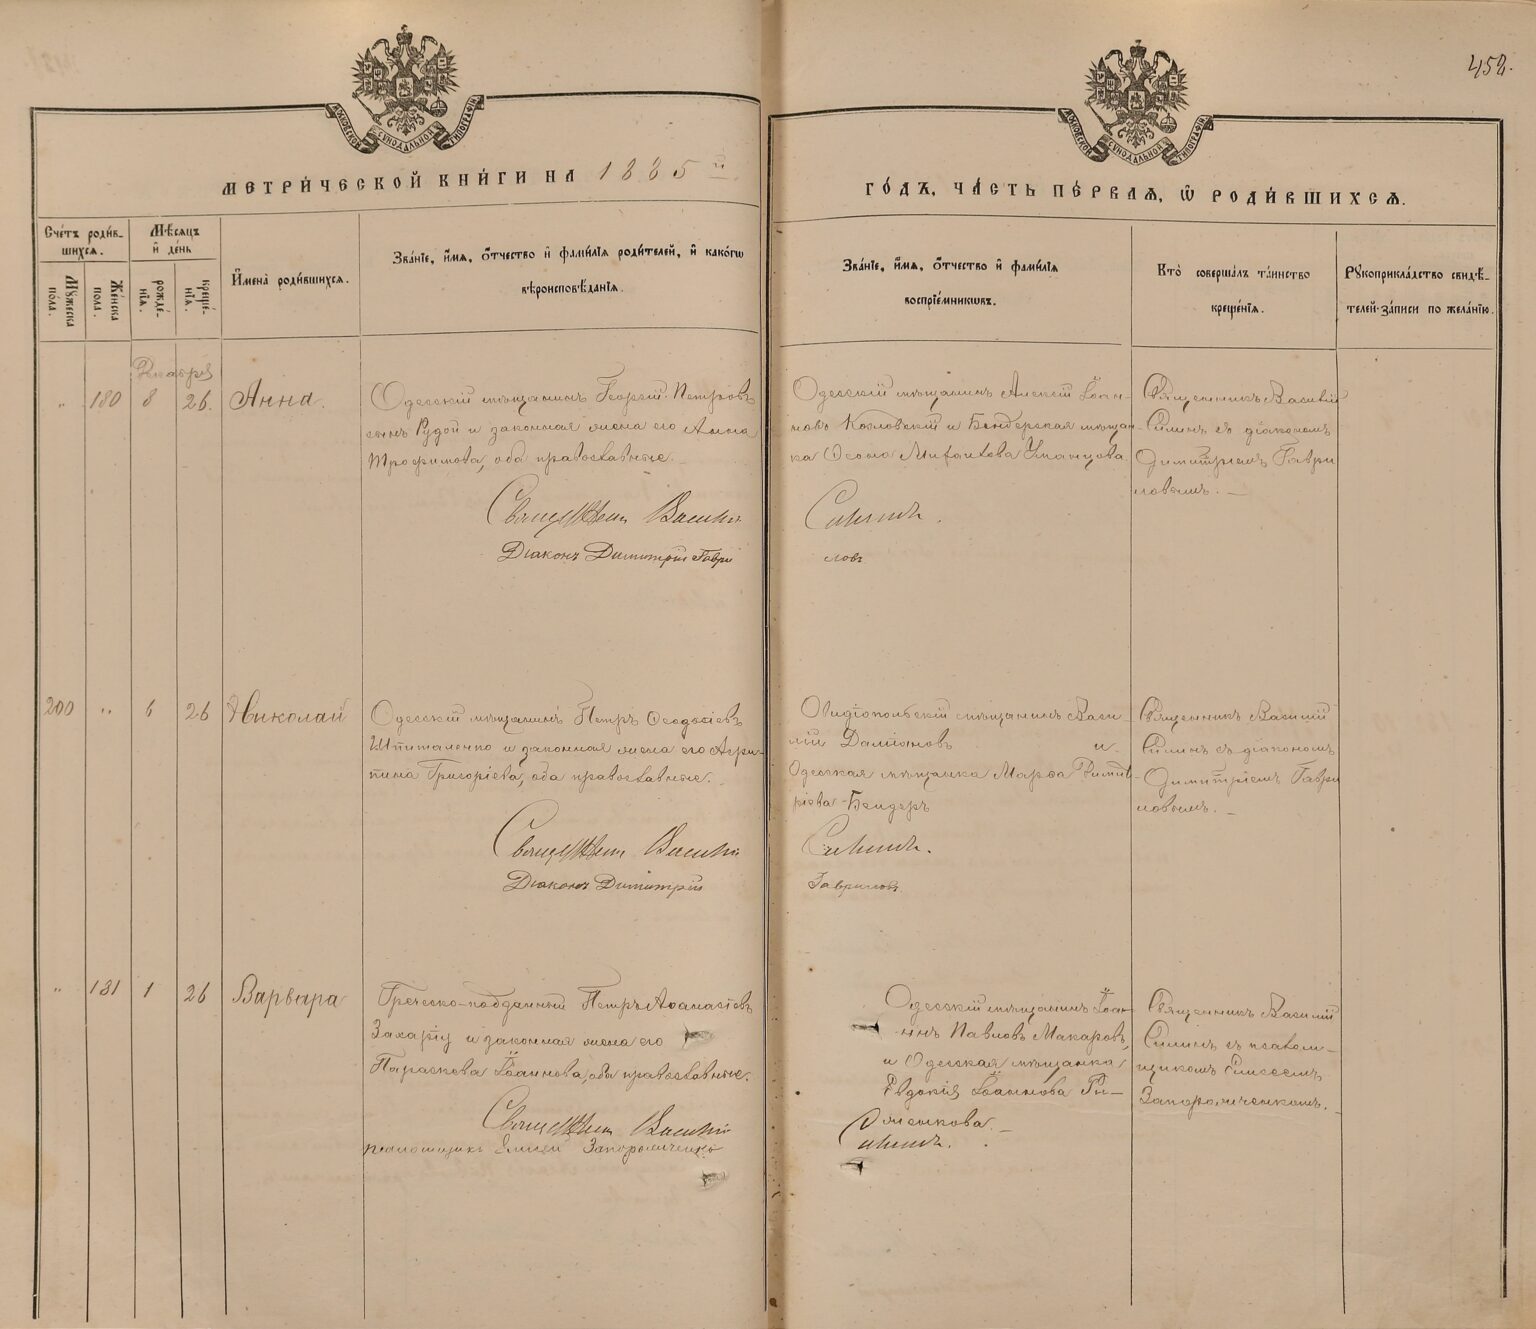 458.
МОСКОВСКОЙ СУНОДАЛЬНОЙ ТИПОГРАФІИ
МОСКОВСКОЙ СУНОДАЛЬНОЙ ТИПОГРАФІИ
МЕТРИ́ЧЕСКОЙ КНИ́ГИ НА 1885 й
ГО́ДЪ, ЧА́СТЬ ПЕ́РВАѦ, Ѡ҆ РОДИ́ВШИХСѦ.
Сче́тъ роди́в-
шихсѧ.
Мꙋ́жеска по́ла.
Же́нска пола.
Мѣ́сѧцъ
и҆ де́нь
рожде́-
нїѧ.
креще́-
нїѧ.
И҆мена̀ роди́вшихсѧ.
Зва́нїе, и҆́мѧ, о҆́тчество и҆ фами́лїѧ роди́телей, и҆ како́гѡ
вѣроисповѣ́данїѧ.
Зва́нїе, и҆́мѧ, о҆́тчество и҆ фами́лїѧ
воспрїе́мникѡвъ.
Кто̀ соверша́лъ та́инство
креще́нїѧ.
Рꙋкоприкла́дство свидѣ́-
телей за́писи по жела́нїю.
Декабря
„ 180 8 26. Анна.
Одесскій мѣщанинъ Георгій Петровъ
сынъ Рудой и законная жена его Анна
Трофимова, оба православные.
Священникъ Василій
Діаконъ Димитрій Гаври
Одесскій мѣщанинъ Алексій Іоан-
новъ Козловскій и Бендерская мѣщан-
ка Ѳеона Михайлова Уманцова
Силинъ.
ловъ
Священникъ Василій
Силинъ съ діакономъ
Димитріемъ Гаври
ловымъ.
200 „ 6 26 Николай
Одесскій мѣщанинъ Петръ Ѳеодосіевъ
Шпиталенко и законная жена его Агри-
пина Григоріева, оба православные.
Священникъ Василій
Діаконъ Димитрій
Овидіопольскій мѣщанинъ Васи-
лій Даміановъ и
Одесская мѣщанка Марѳа Димит-
ріева Бендеръ
Силинъ.
Гавриловъ
Священникъ Василій
Силинъ съ діакономъ
Димитріемъ Гаври
ловымъ.
„ 181 1 26 Варвара
Греческо-подданный Петръ Аѳанасіевъ
Захаріу и законная жена его
Параскева Іоаннова, оба православные.
Священникъ Василій
псаломщикъ Елисей Запорожченко
Одесскій мѣщанинъ Іоан-
нъ Павловъ Макаровъ,
и Одесская мѣщанка
Евдокія Іоаннова
Силинъ.
Священникъ Василій
Силинъ съ псалом-
щикомъ Елисеемъ
Запорожченкомъ.